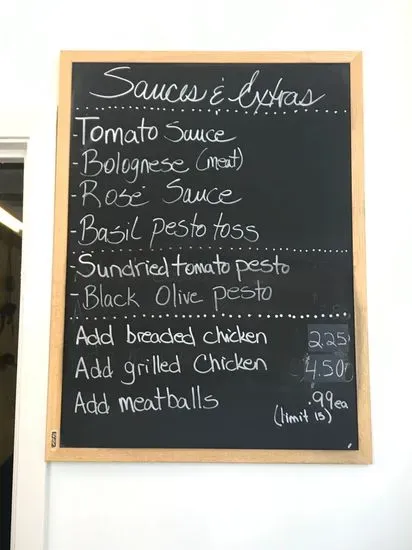 Sauces & Extras
-Tomato Sauce
-Bolognese (meat)
-Rosé Sauce
-Basil pesto toss
-Sundried tomato pesto
-Black Olive pesto
Add breaded chicken 2.25
Add grilled Chicken 4.50
Add meatballs .99ea
(limit 15)